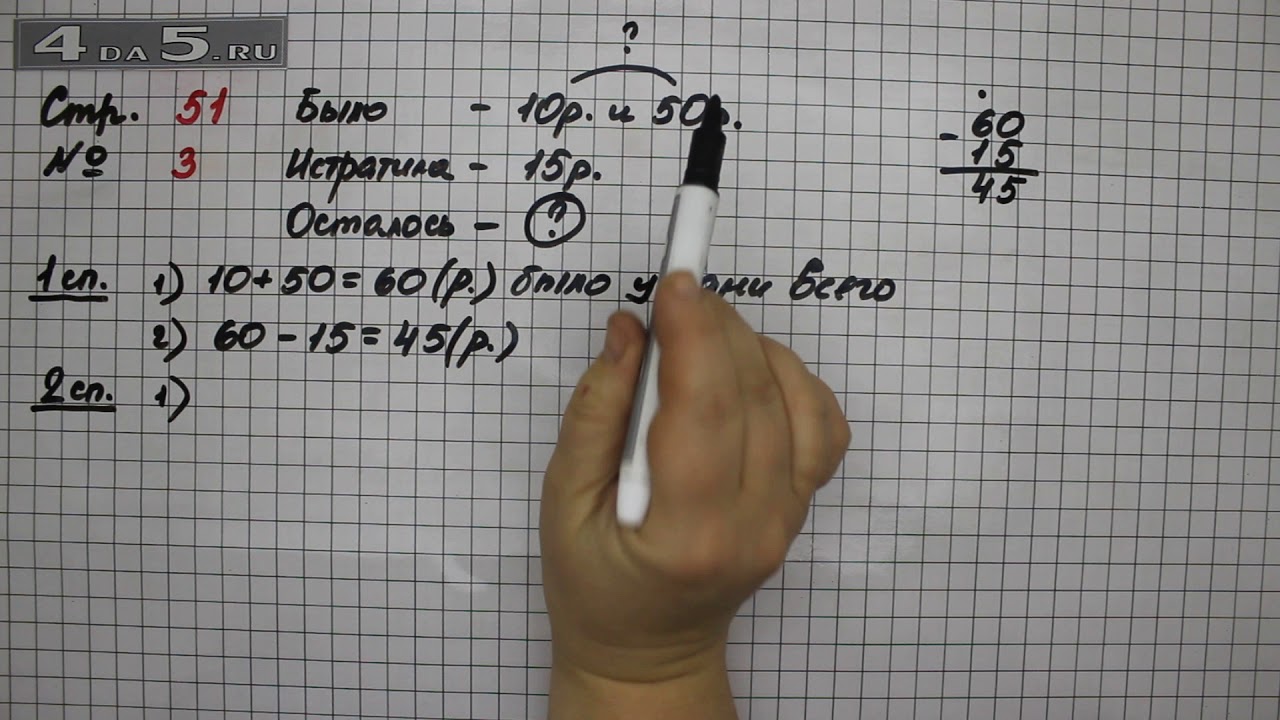 4DA5.RU
?
Стр. 51 Было - 10р. и 50р.
№ 3 Истратила - 15р.
Осталось - ?
60
- 15
45
1 сп. 1) 10 + 50 = 60 (р.) было у всего
2) 60 - 15 = 45 (р.)
2 сп. 1)